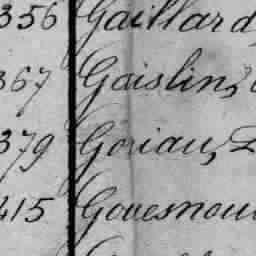 356 Gaillard
367 Gaislin,
379 Goriau,
415 Gouesnou